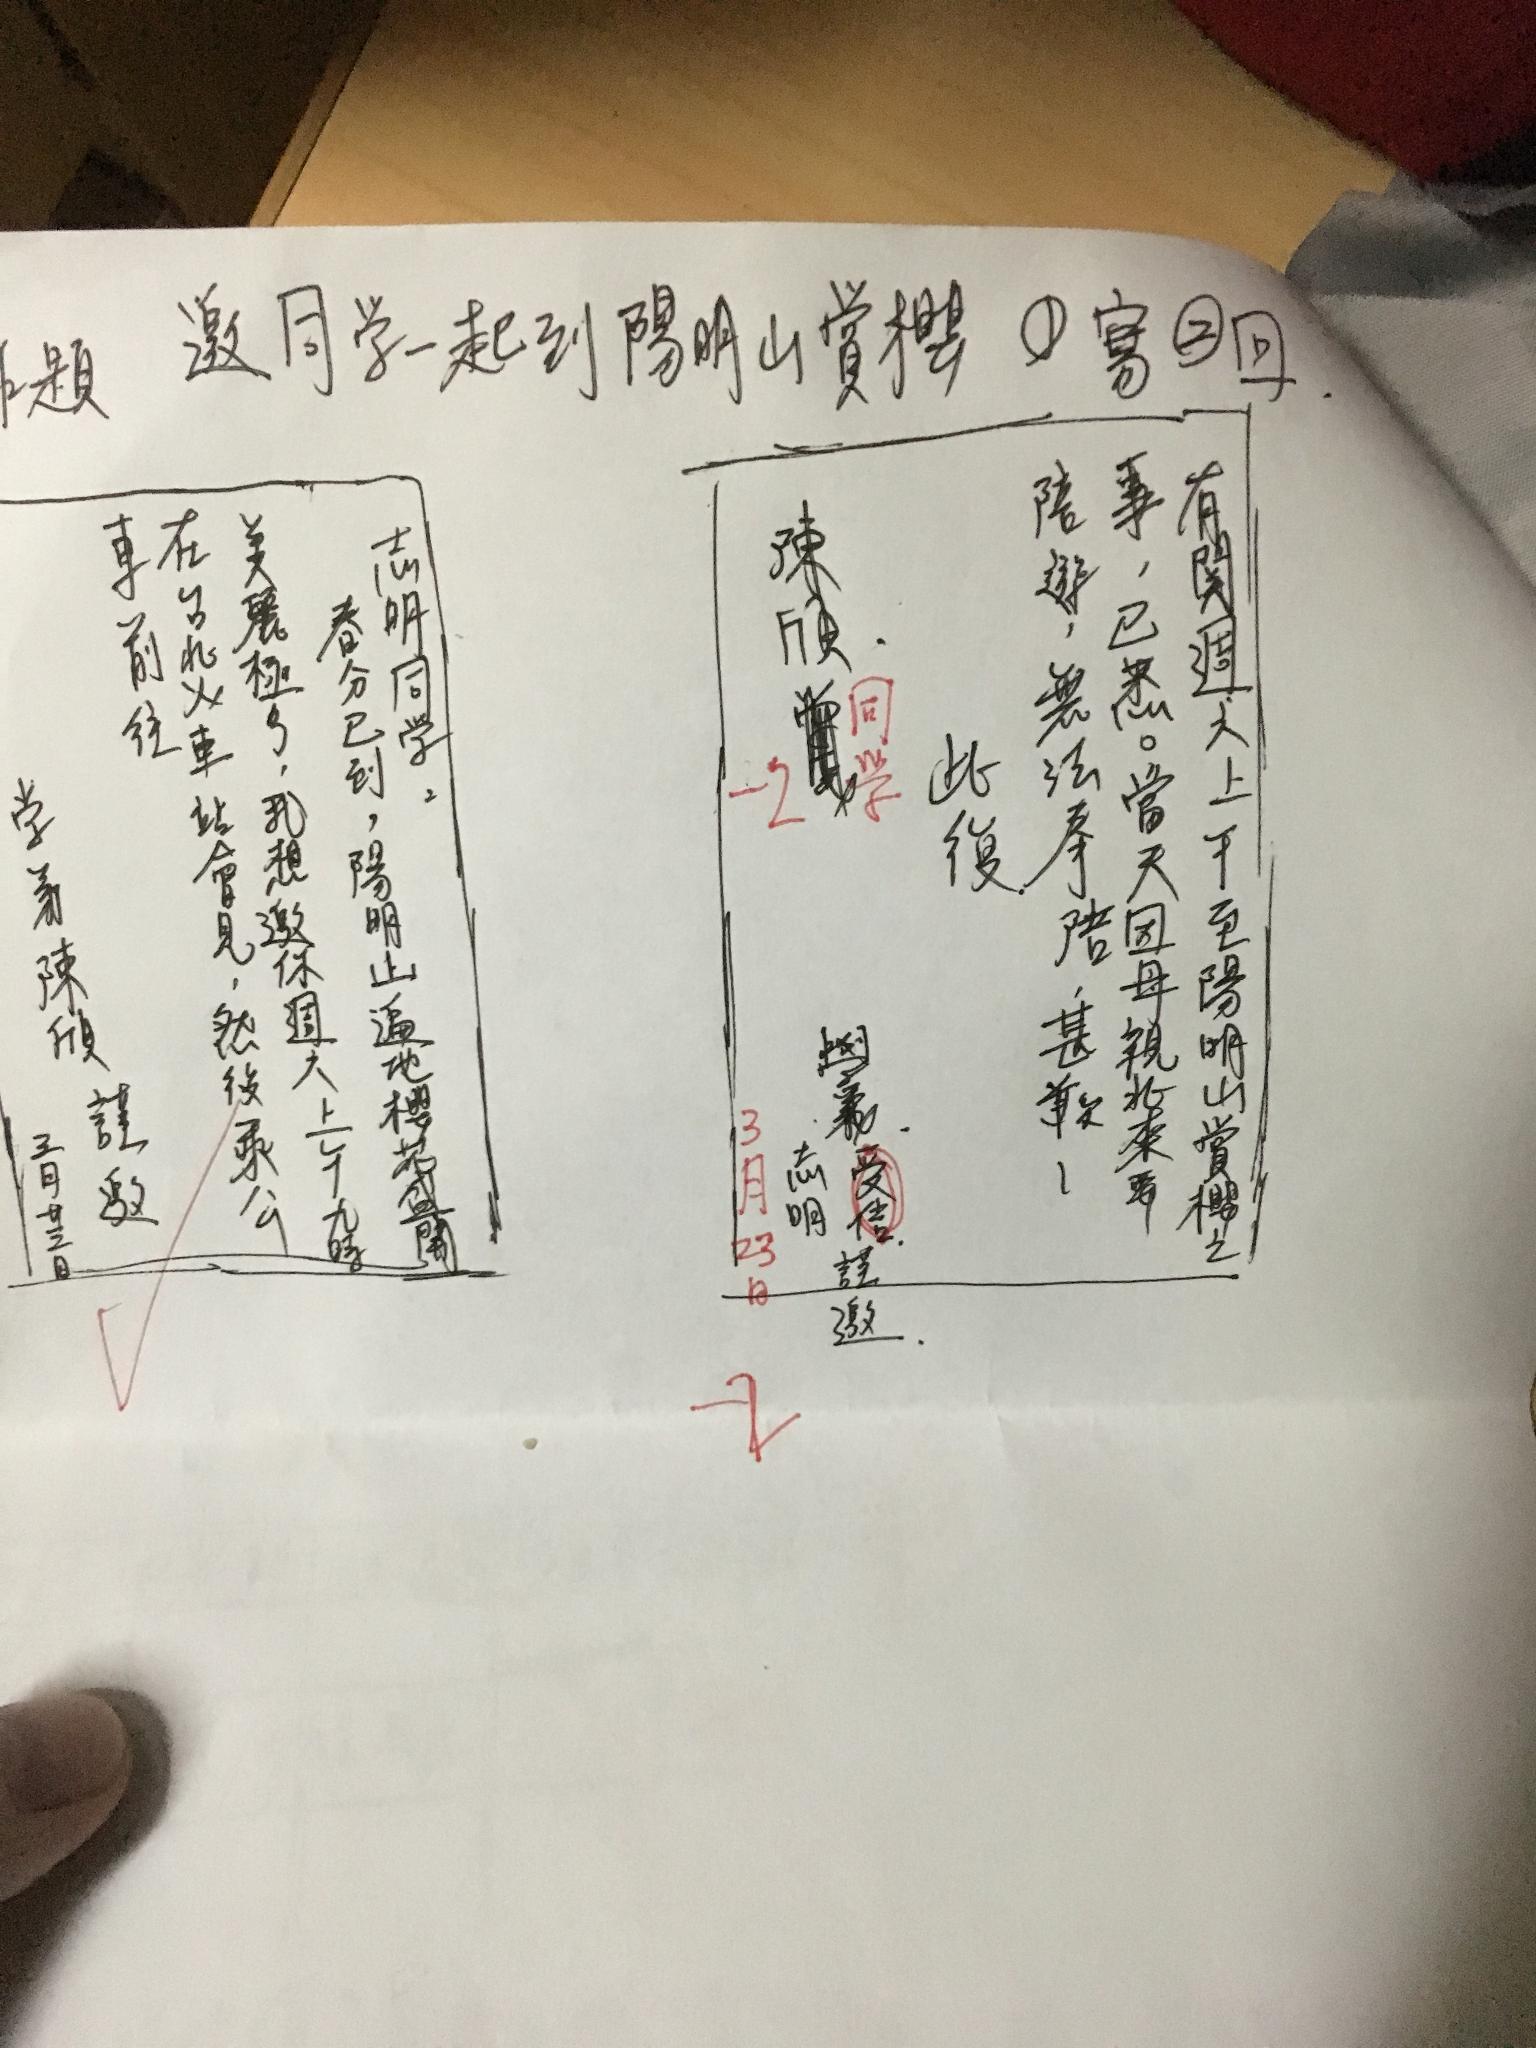 題 邀同学一起到陽明山賞櫻 ①寫②回.
志明同学.
春分已到,陽明山遍地櫻花盛開
美麗極了,我想邀你週六上午九時
在台北火車站會見,然後乘公
車前往
学弟陳欣 謹邀
三月廿三日
有関週六上午至陽明山賞櫻之
事,已悉。當天因母親北來要
陪遊,無法奉陪,甚歉!
此復.
陳欣.
同学
-2
受信.謹邀.
志明
3月23日
-2